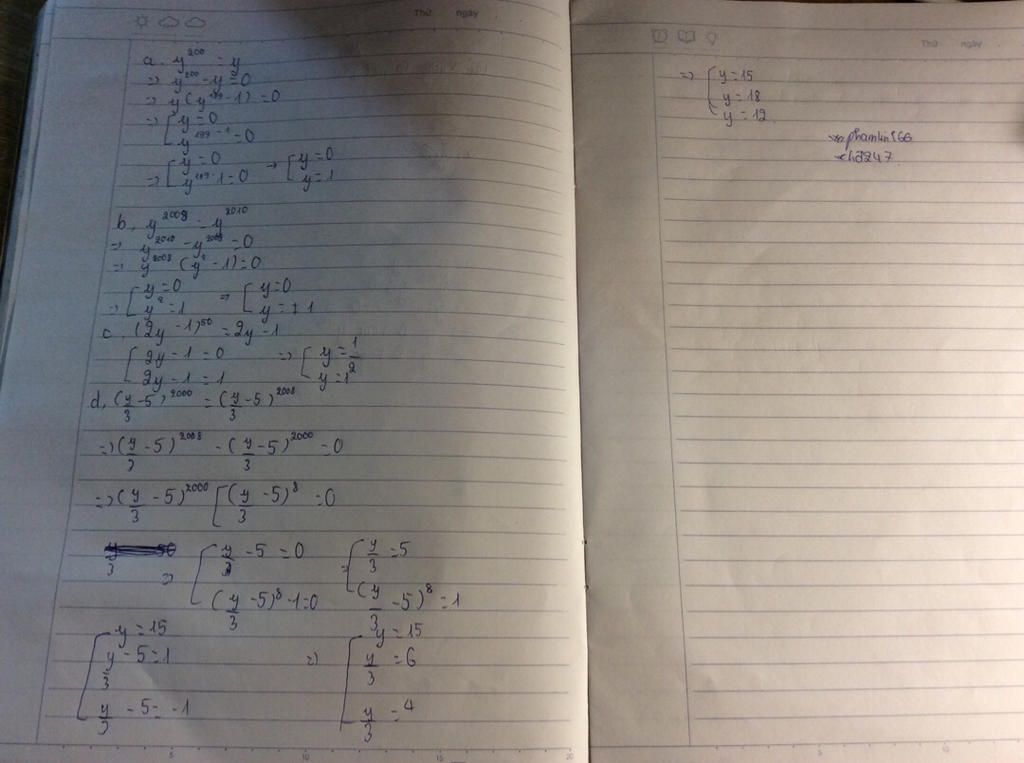 Thứ ngày
a. y^200 = y
=> y^200 - y = 0
=> y(y^199 - 1) = 0
=> [ y = 0
y^199 - 1 = 0
=> [ y = 0
y^199 - 1 = 0 → [ y = 0
y = 1
b, y^2008 = y^2010
=> y^2010 - y^2008 = 0
=> y^2008 (y^2 - 1) = 0
=> [ y = 0
y^2 = 1 => [ y = 0
y = ±1
c. (2y - 1)^50 = 2y - 1
[ 2y - 1 = 0
2y - 1 = 1 => [ y = 1/2
y = 1
d, (y/3 - 5)^2000 = (y/3 - 5)^2008
=> (y/3 - 5)^2008 - (y/3 - 5)^2000 = 0
=> (y/3 - 5)^2000 [ (y/3 - 5)^8 = 0
=> [ y/3 - 5 = 0
(y/3 - 5)^8 - 1 = 0
= [ y/3 = 5
(y/3 - 5)^8 = 1
[ y = 15
y/3 - 5 = 1
y/3 - 5 = -1
=> [ y = 15
y/3 = 6
y/3 = 4
5 10 15 20
Thứ ngày
=> [ y = 15
y = 18
y = 12
5 10